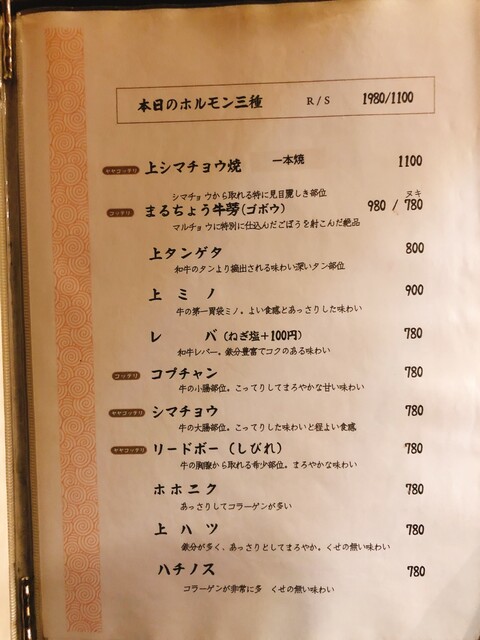 本日のホルモン三種 R/S 1980/1100
ヤヤコッテリ 上シマチョウ焼 一本焼 1100
シマチョウから取れる特に見目麗しき部位
ヌキ
コッテリ まるちょう牛蒡(ゴボウ) 980 / 780
マルチョウに特別に仕込んだごぼうを射こんだ絶品
上タンゲタ 800
和牛のタンより摘出される味わい深いタン部位
上ミノ 900
牛の第一胃袋ミノ。よい食感とあっさりした味わい
レバ(ねぎ塩+100円) 780
和牛レバー。鉄分豊富でコクのある味わい
コッテリ コプチャン 780
牛の小腸部位。こってりしてまろやかな甘い味わい
ヤヤコッテリ シマチョウ 780
牛の大腸部位。こってりした味わいと程よい食感
ヤヤコッテリ リードボー(しびれ) 780
牛の胸腺から取れる希少部位。まろやかな味わい
ホホニク 780
あっさりしてコラーゲンが多い
上ハツ 780
鉄分が多く、あっさりとしてまろやか。くせの無い味わい
ハチノス 780
コラーゲンが非常に多 くせの無い味わい